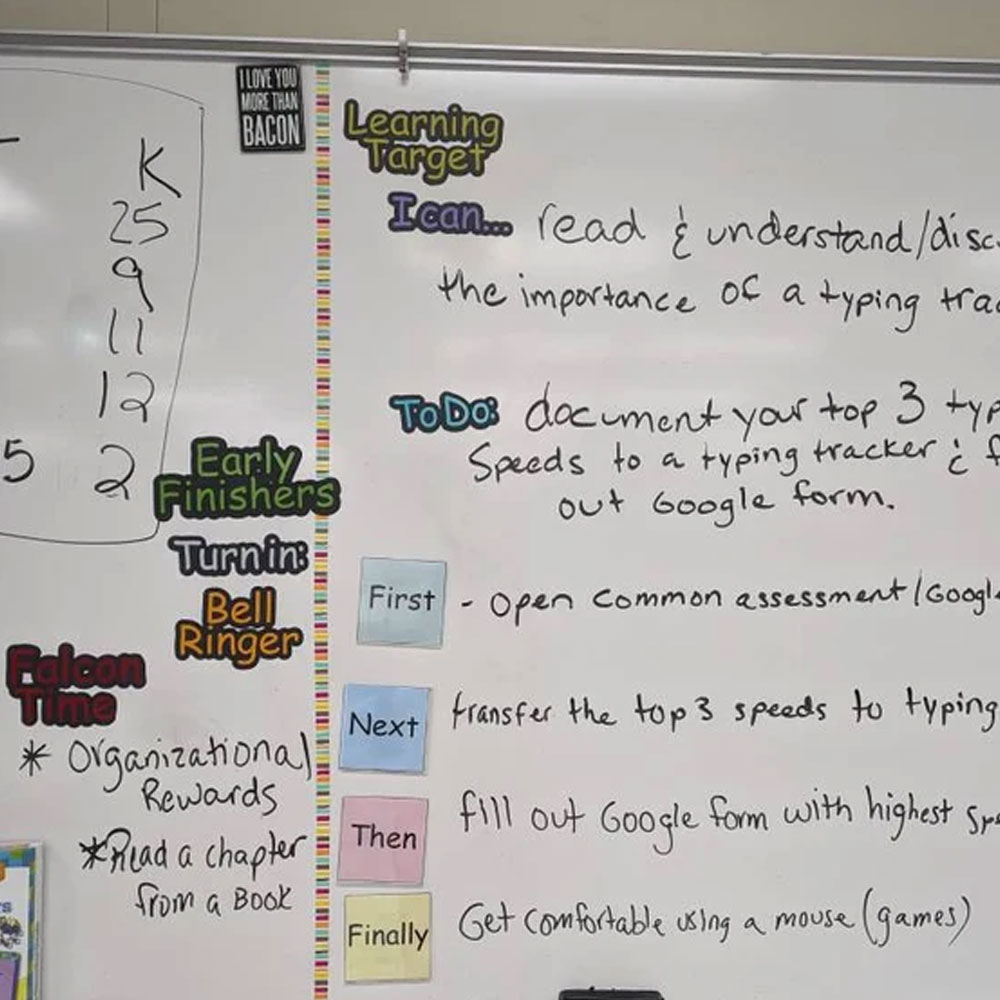 I LOVE YOU
MORE THAN
BACON
K
25
9
11
12
5 2
Early
Finishers
Turn in:
Bell
Ringer
Falcon
Time
* Organizational
Rewards
* Read a chapter
from a Book
Learning
Target
I can... read & understand/disc
the importance of a typing trac
To Do: document your top 3 typ
Speeds to a typing tracker & f
out Google form.
First - Open common assessment/Google
Next transfer the top 3 speeds to typing
Then fill out Google form with highest spe
Finally Get comfortable using a mouse (games)